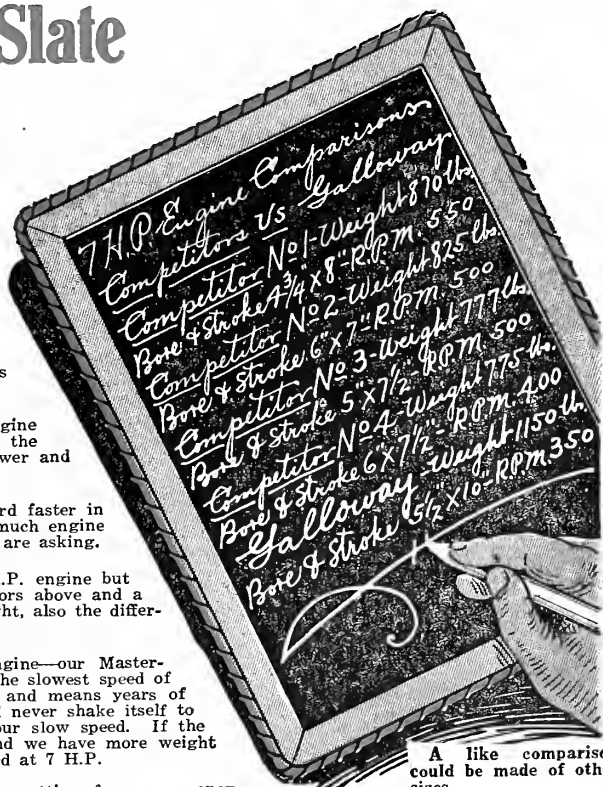 Slate
7 H.P. Engine Comparisons
Competitors Vs Galloway
Competitor No 1-Weight 870 lbs.
Bore & Stroke 4 3/4" x 8"-R.P.M. 550
Competitor No 2-Weight 825 lbs.
Bore & Stroke 6" x 7"-R.P.M. 500
Competitor No 3-Weight 777 lbs.
Bore & Stroke 5" x 7 1/2"-RPM 500
Competitor No 4-Weight 775 lbs.
Bore & Stroke 6" x 7 1/2"-R.P.M. 400
Galloway-Weight 1150 lb.
Bore & Stroke 5 1/2" x 10"-R.P.M. 350
s
gine
the
wer and
rd faster in
much engine
are asking.
.P. engine but
ors above and a
ht, also the differ-
gine—our Master-
he slowest speed of
and means years of
never shake itself to
our slow speed. If the
nd we have more weight
ed at 7 H.P.
A like comparis
could be made of oth